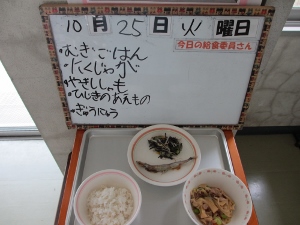 10月25日火曜日
今日の給食委員さん
・むぎごはん
・にくじゃが
・やきししゃも
・ひじきのあえもの
・ぎゅうにゅう